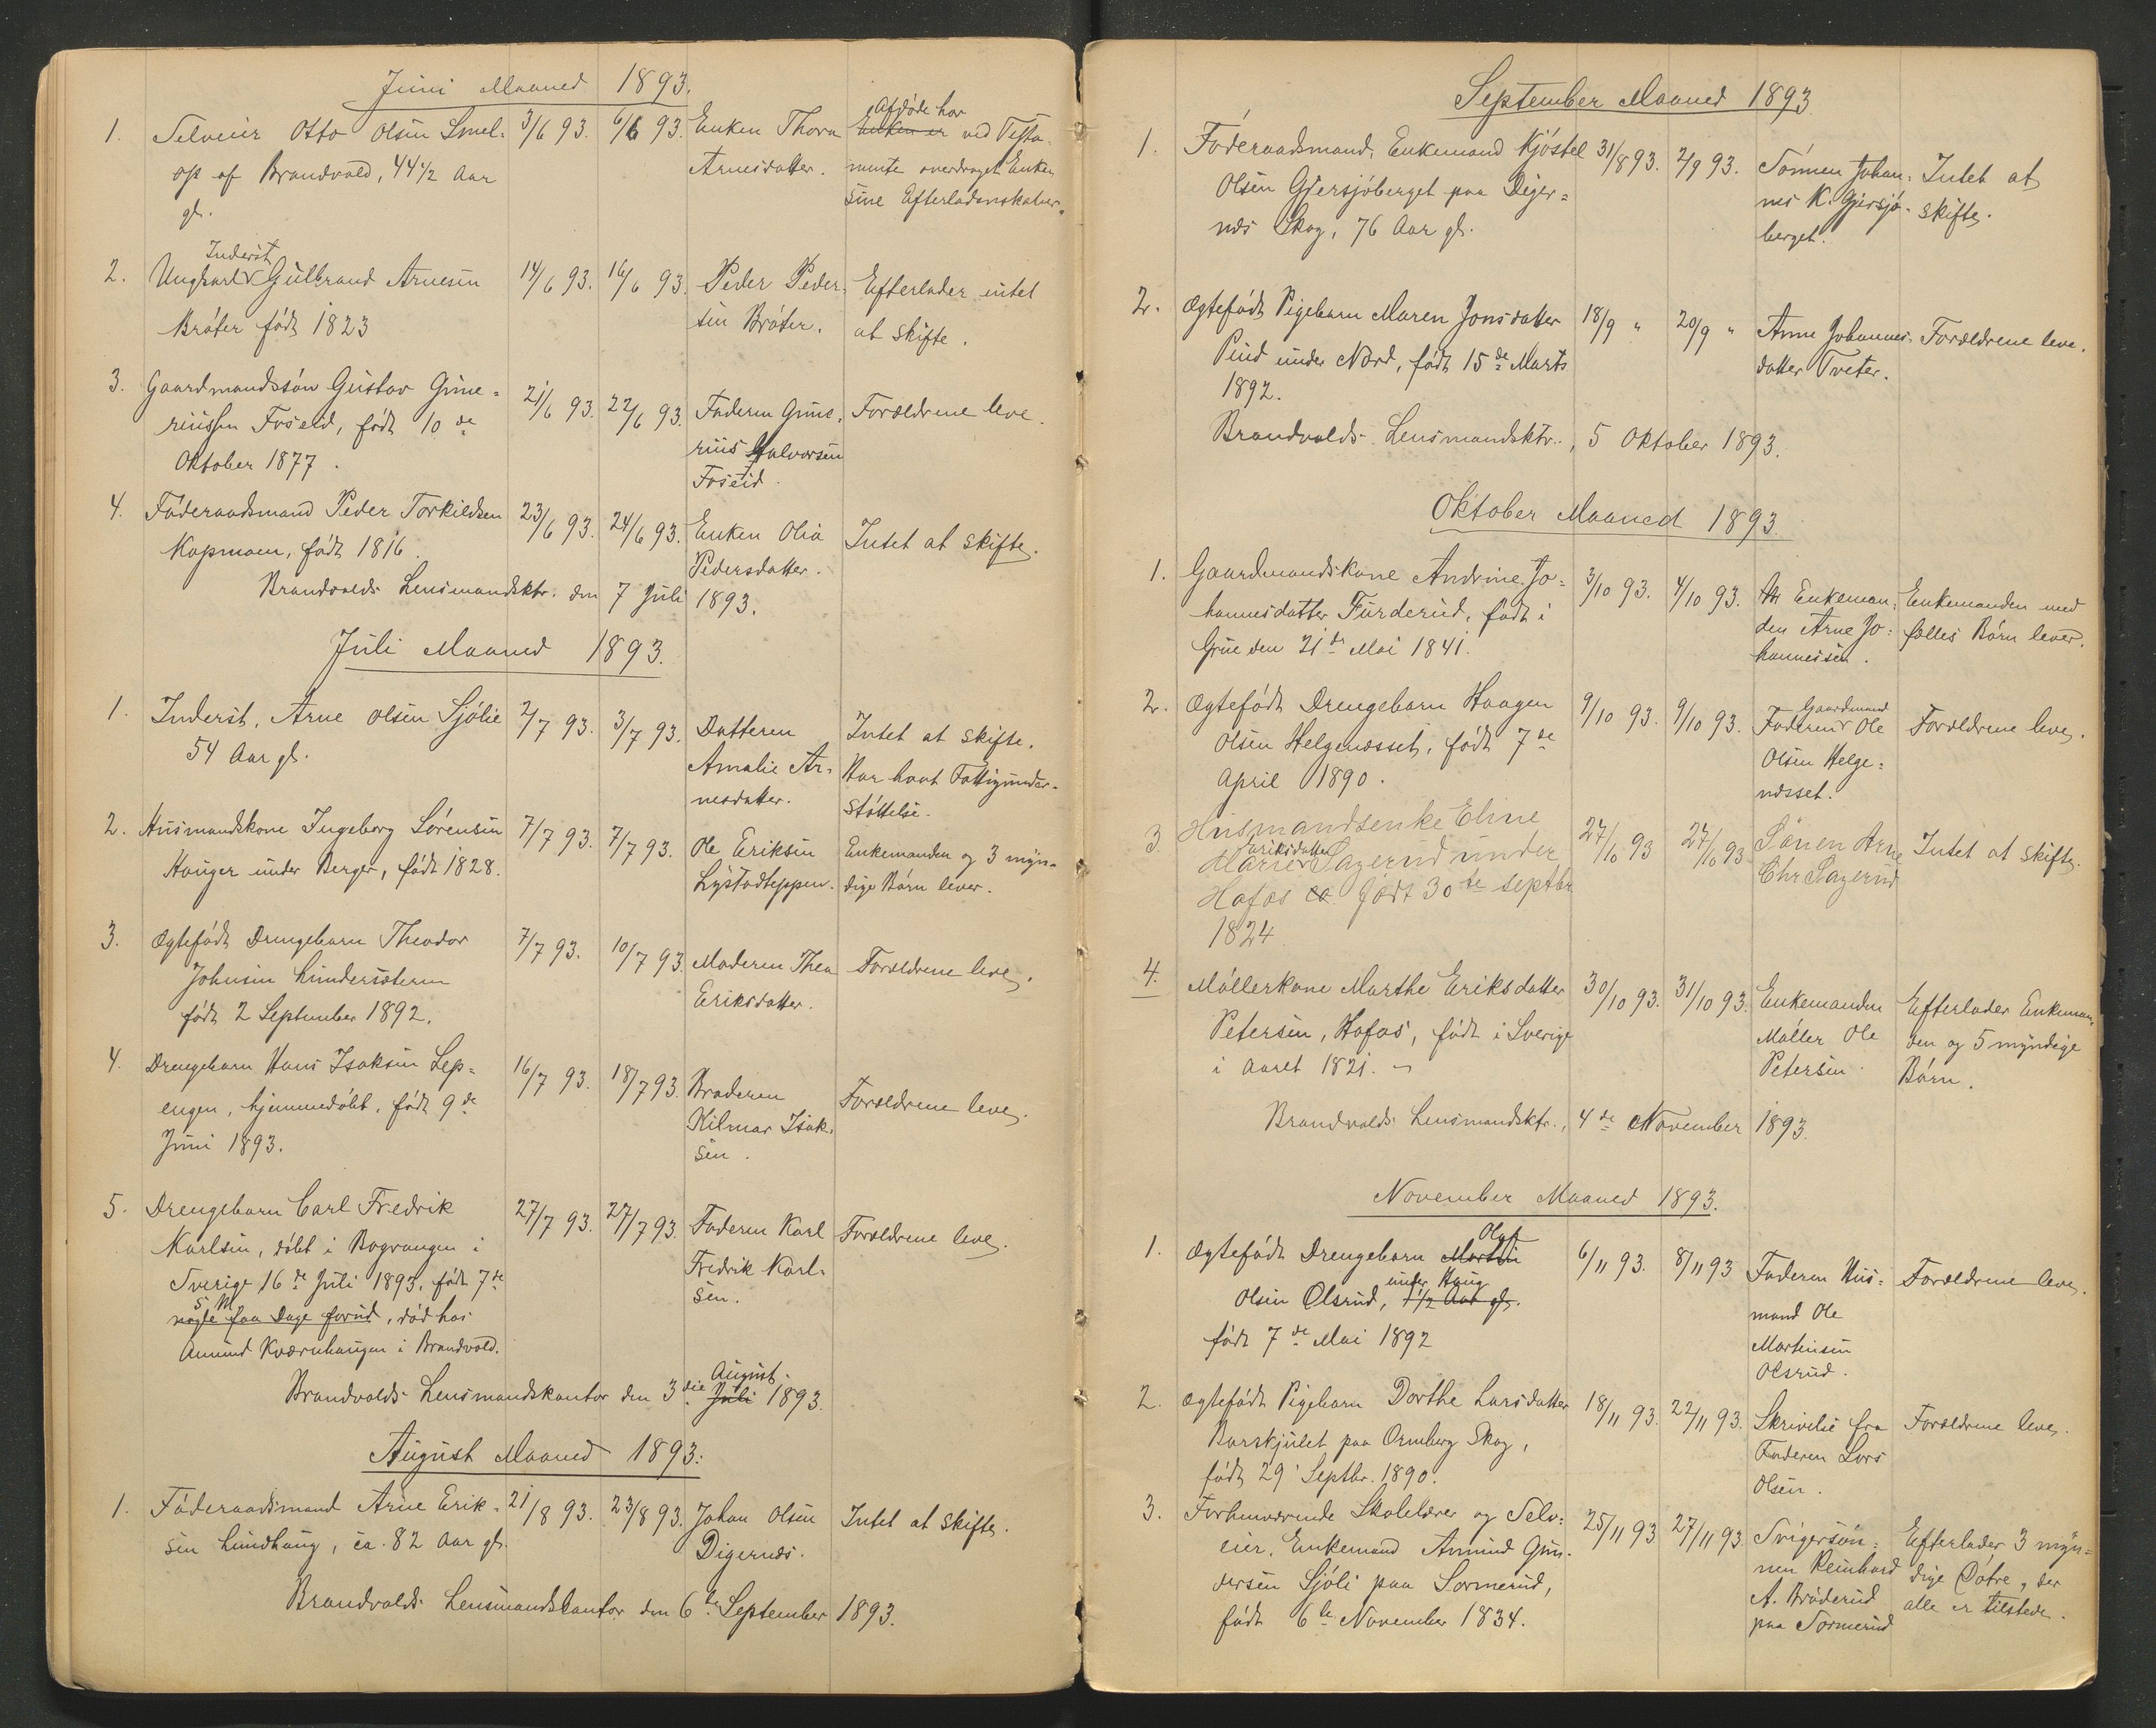 Juni Maaned 1893.
1. Selveier Otto Olsen Smel- 3/6 93. 6/6 93. Enken Thora Afdøde har Enken er ved Testa-
op af Brandvold, 44 1/2 Aar Arnesdatter. mente overdraget Enken
gl. sine Efterladenskaber.
Inderst
2. Ungkarl Gulbrand Arnesen 14/6 93. 16/6 93. Peder Peder- Efterlader intet
Bråten født 1823 sen Bråten. at skifte.
3. Gaardmandssøn Gustav Gune- 21/6 93. 22/6 93. Faderen Gune- Forældrene leve.
riussen Foseid, født 10de rius Halvorsen
Oktober 1877. Foseid.
4. Føderaadsmand Peder Torkildsen 23/6 93. 24/6 93. Enken Olia Intet at skifte.
Kopmoen, født 1816. Pedersdatter.
Brandvolds Lensmandsktr. den 7 Juli 1893.
Juli Maaned 1893.
1. Inderst, Arne Olsen Sjølie 2/7 93. 3/7 93. Datteren Intet at skifte.
54 Aar gl. Amalie Ar- Har havt Fattigunder-
nesdatter. støttelse.
2. Husmandskone Ingeborg Sørensen 7/7 93. 7/7 93. Ole Eriksen Enkemanden og 3 myn-
Hauger under Berger, født 1828. Lystadteppen. dige Børn lever.
3. Ægtefødt Drengebarn Theodor 7/7 93. 10/7 93. Moderen Thea Forældrene leve.
Johnsen Lundersæteren Eriksdatter.
født 2 September 1892.
4. Drengebarn Hans Isaksen Lep- 16/7 93. 18/7 93. Broderen Forældrene leve.
engen, hjemmedøbt, født 9de Hilmar Isak-
Juni 1893. sen.
5. Drengebarn Carl Fredrik 27/7 93. 27/7 93. Faderen Karl Forældrene leve.
Karlsen, døbt i Bogvangen i Fredrik Karl-
Sverige 16de Juli 1893, født 7de sen.
s. M.
nogle faa Dage forud, død hos
Amund Kværnhaugen i Brandvold.
August
Brandvolds Lensmandskontor den 3die Juli 1893.
August Maaned 1893.
1. Føderaadsmand Arne Erik- 21/8 93. 23/8 93. Johan Olsen Intet at skifte.
sen Lundhaug, ca. 82 Aar gl. Digernæs.
Brandvolds Lensmandskontor den 6te September 1893.
September Maaned 1893
1. Føderaadsmand, Enkemand Kjøstel 31/8 93. 2/9 93. Sønnen Johan- Intet at
Olsen Gjersjøberget paa Diger- nes K. Gjersjø- skifte.
næs Skog, 76 Aar gl. berget.
2. Ægtefødt Pigebarn Maren Jonsdatter 18/9 " 20/9 " Anne Johannes- Forældrene leve.
Pind under Nord, født 15de Marts datter Tveter.
1892.
Brandvolds Lensmandsktr., 5 Oktober 1893.
Oktober Maaned 1893.
1. Gaardmandskone Andrine Jo- 3/10 93. 4/10 93. Enkeman- Enkemanden med
hannesdatter Furderud, født i den Arne Jo- fælles Børn lever.
Grue den 21de Mai 1841. hannessen.
2. Ægtefødt Drengebarn Haagen 9/10 93. 9/10 93. Faderen Gaardmand Ole Forældrene leve.
Olsen Helgenæsset, født 7de Olsen Helge-
April 1890. næsset.
3. Husmandsenke Eline 27/10 93 27/10 93 Sønen Arne Intet at skifte.
Marie Eriksdatter Lazerud under Chr Lazerud
Hofos ca. født 30te septbr
1824
4. Møllerkone Marthe Eriksdatter 30/10 93. 31/10 93. Enkemanden Efterlader Enkeman-
Petersen, Hofos, født i Sverige Møller Ole den og 5 myndige
i Aaret 1821. Petersen. Børn.
Brandvolds Lensmandsktr., 4de November 1893.
November Maaned 1893.
Olaf
1. Ægtefødt Drengebarn Martin 6/11 93. 8/11 93 Faderen Hus- Forældrene leve.
under Haug
Olsen Olsrud, 1 1/2 Aar gl. mand Ole
født 7de Mai 1892 Martinsen
Olsrud.
2. Ægtefødt Pigebarn Dorthe Larsdatter 18/11 93. 22/11 93. Skrivelse fra Forældrene leve.
Barskjulet paa Ormberg Skog, Faderen Lars
født 29 Septbr. 1890. Olsen.
3. Forhenværende Skolelærer og Selv- 25/11 93 27/11 93. Svigersøn- Efterlader 3 myn-
eier, Enkemand Amund Gun- nen Reinhard dige Døtre, der
dersen Sjøli paa Sormerud, A. Bråderud alle er tilstede.
født 6te November 1834. paa Sormerud